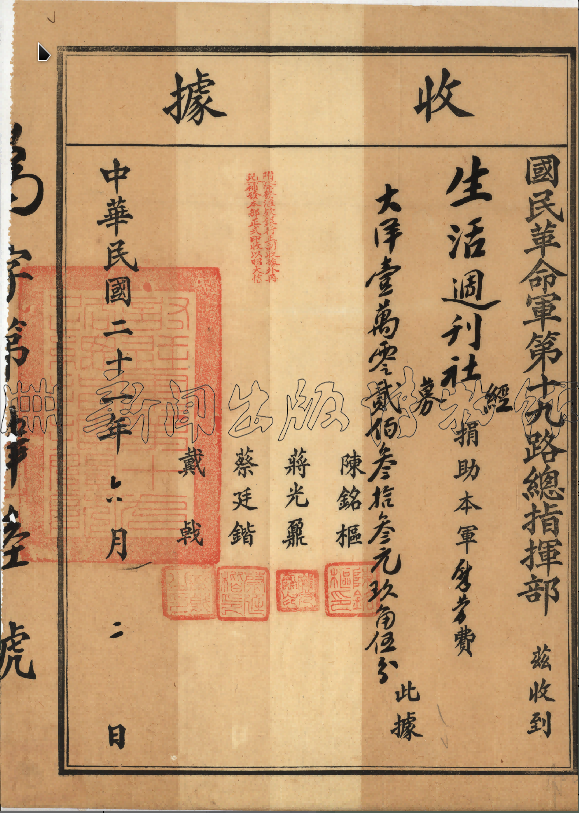 收據
國民革命軍第十九路總指揮部 茲收到
生活週刊社經募捐助本軍慰勞費
大洋壹萬零貳佰叁拾叁元玖角伍分
此據
陳銘樞
蔣光鼐
蔡廷鍇
戴戟
中華民國二十一年六月二日
萬字第 陸號
新聞出版